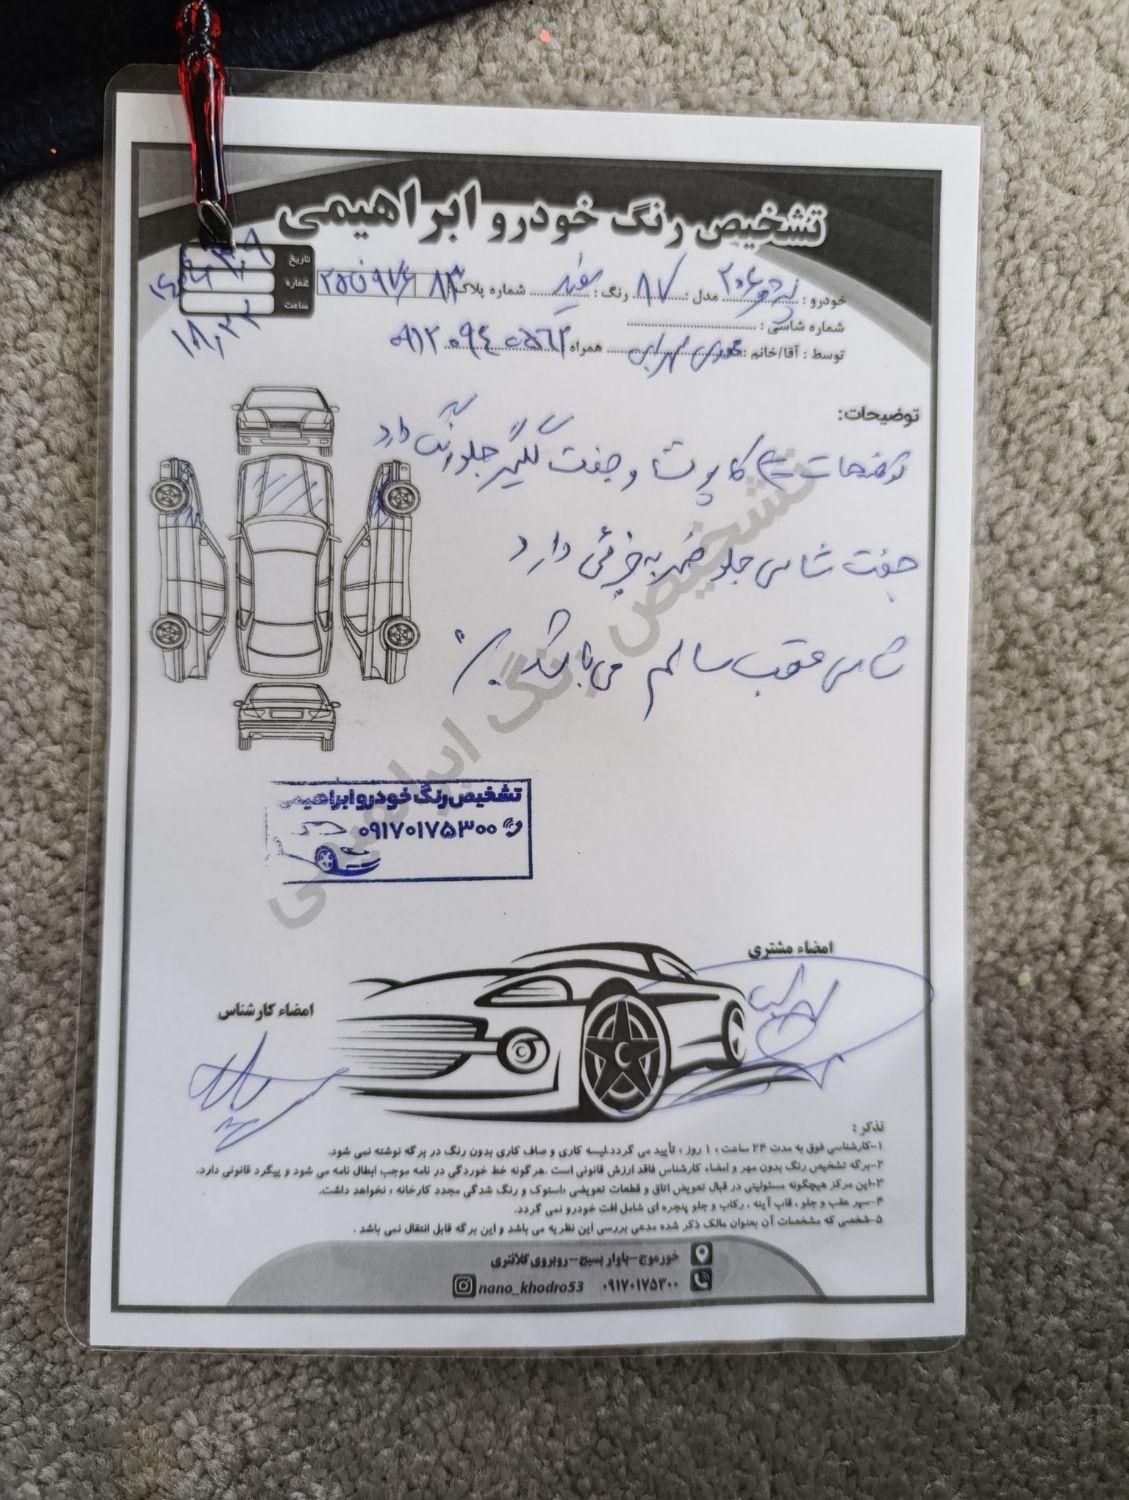 تشخیص رنگ خودرو ابراهیمی
تاریخ
شماره
ساعت
۱۸٫۲۲
خودرو : پژو ۲۰۶ مدل : ۸۷ رنگ : سفید شماره پلاک
شماره شاسی :
توسط : آقا/خانم : همراه
توضیحات:
کاپوت و جفت گلگیر جلو رنگ دارد
جفت شاسی جلو ضربه جزئی دارد
شاسی عقب سالم می باشد
تشخیص رنگ ابراهیمی
تشخیص رنگ خودرو ابراهیمی
۰۹۱۷۰۱۷۵۳۰۰
امضاء مشتری
امضاء کارشناس
تذکر :
۱-کارشناسی فوق به مدت ۲۴ ساعت ، ۱ روز ، تأیید می گردد.لیسه کاری و صاف کاری بدون رنگ در برگه نوشته نمی شود.
۲-برگه تشخیص رنگ بدون مهر و امضاء کارشناس فاقد ارزش قانونی است .هرگونه خط خوردگی در نامه موجب ابطال نامه می شود و پیگرد قانونی دارد.
۳-این مرکز هیچگونه مسئولیتی در قبال تعویض اتاق و قطعات تعویضی ،استوک و رنگ شدگی مجدد کارخانه ، نخواهد داشت.
۴-سپر عقب و جلو ، قاب آینه ، رکاب و جلو پنجره ای شامل افت خودرو نمی گردد.
۵-شخصی که مشخصات آن بعنوان مالک ذکر شده مدعی بررسی این نظریه می باشد و این برگه قابل انتقال نمی باشد .
خورموج-بلوار بسیج-روبروی کلانتری
۰۹۱۷۰۱۷۵۳۰۰ nano_khodro53